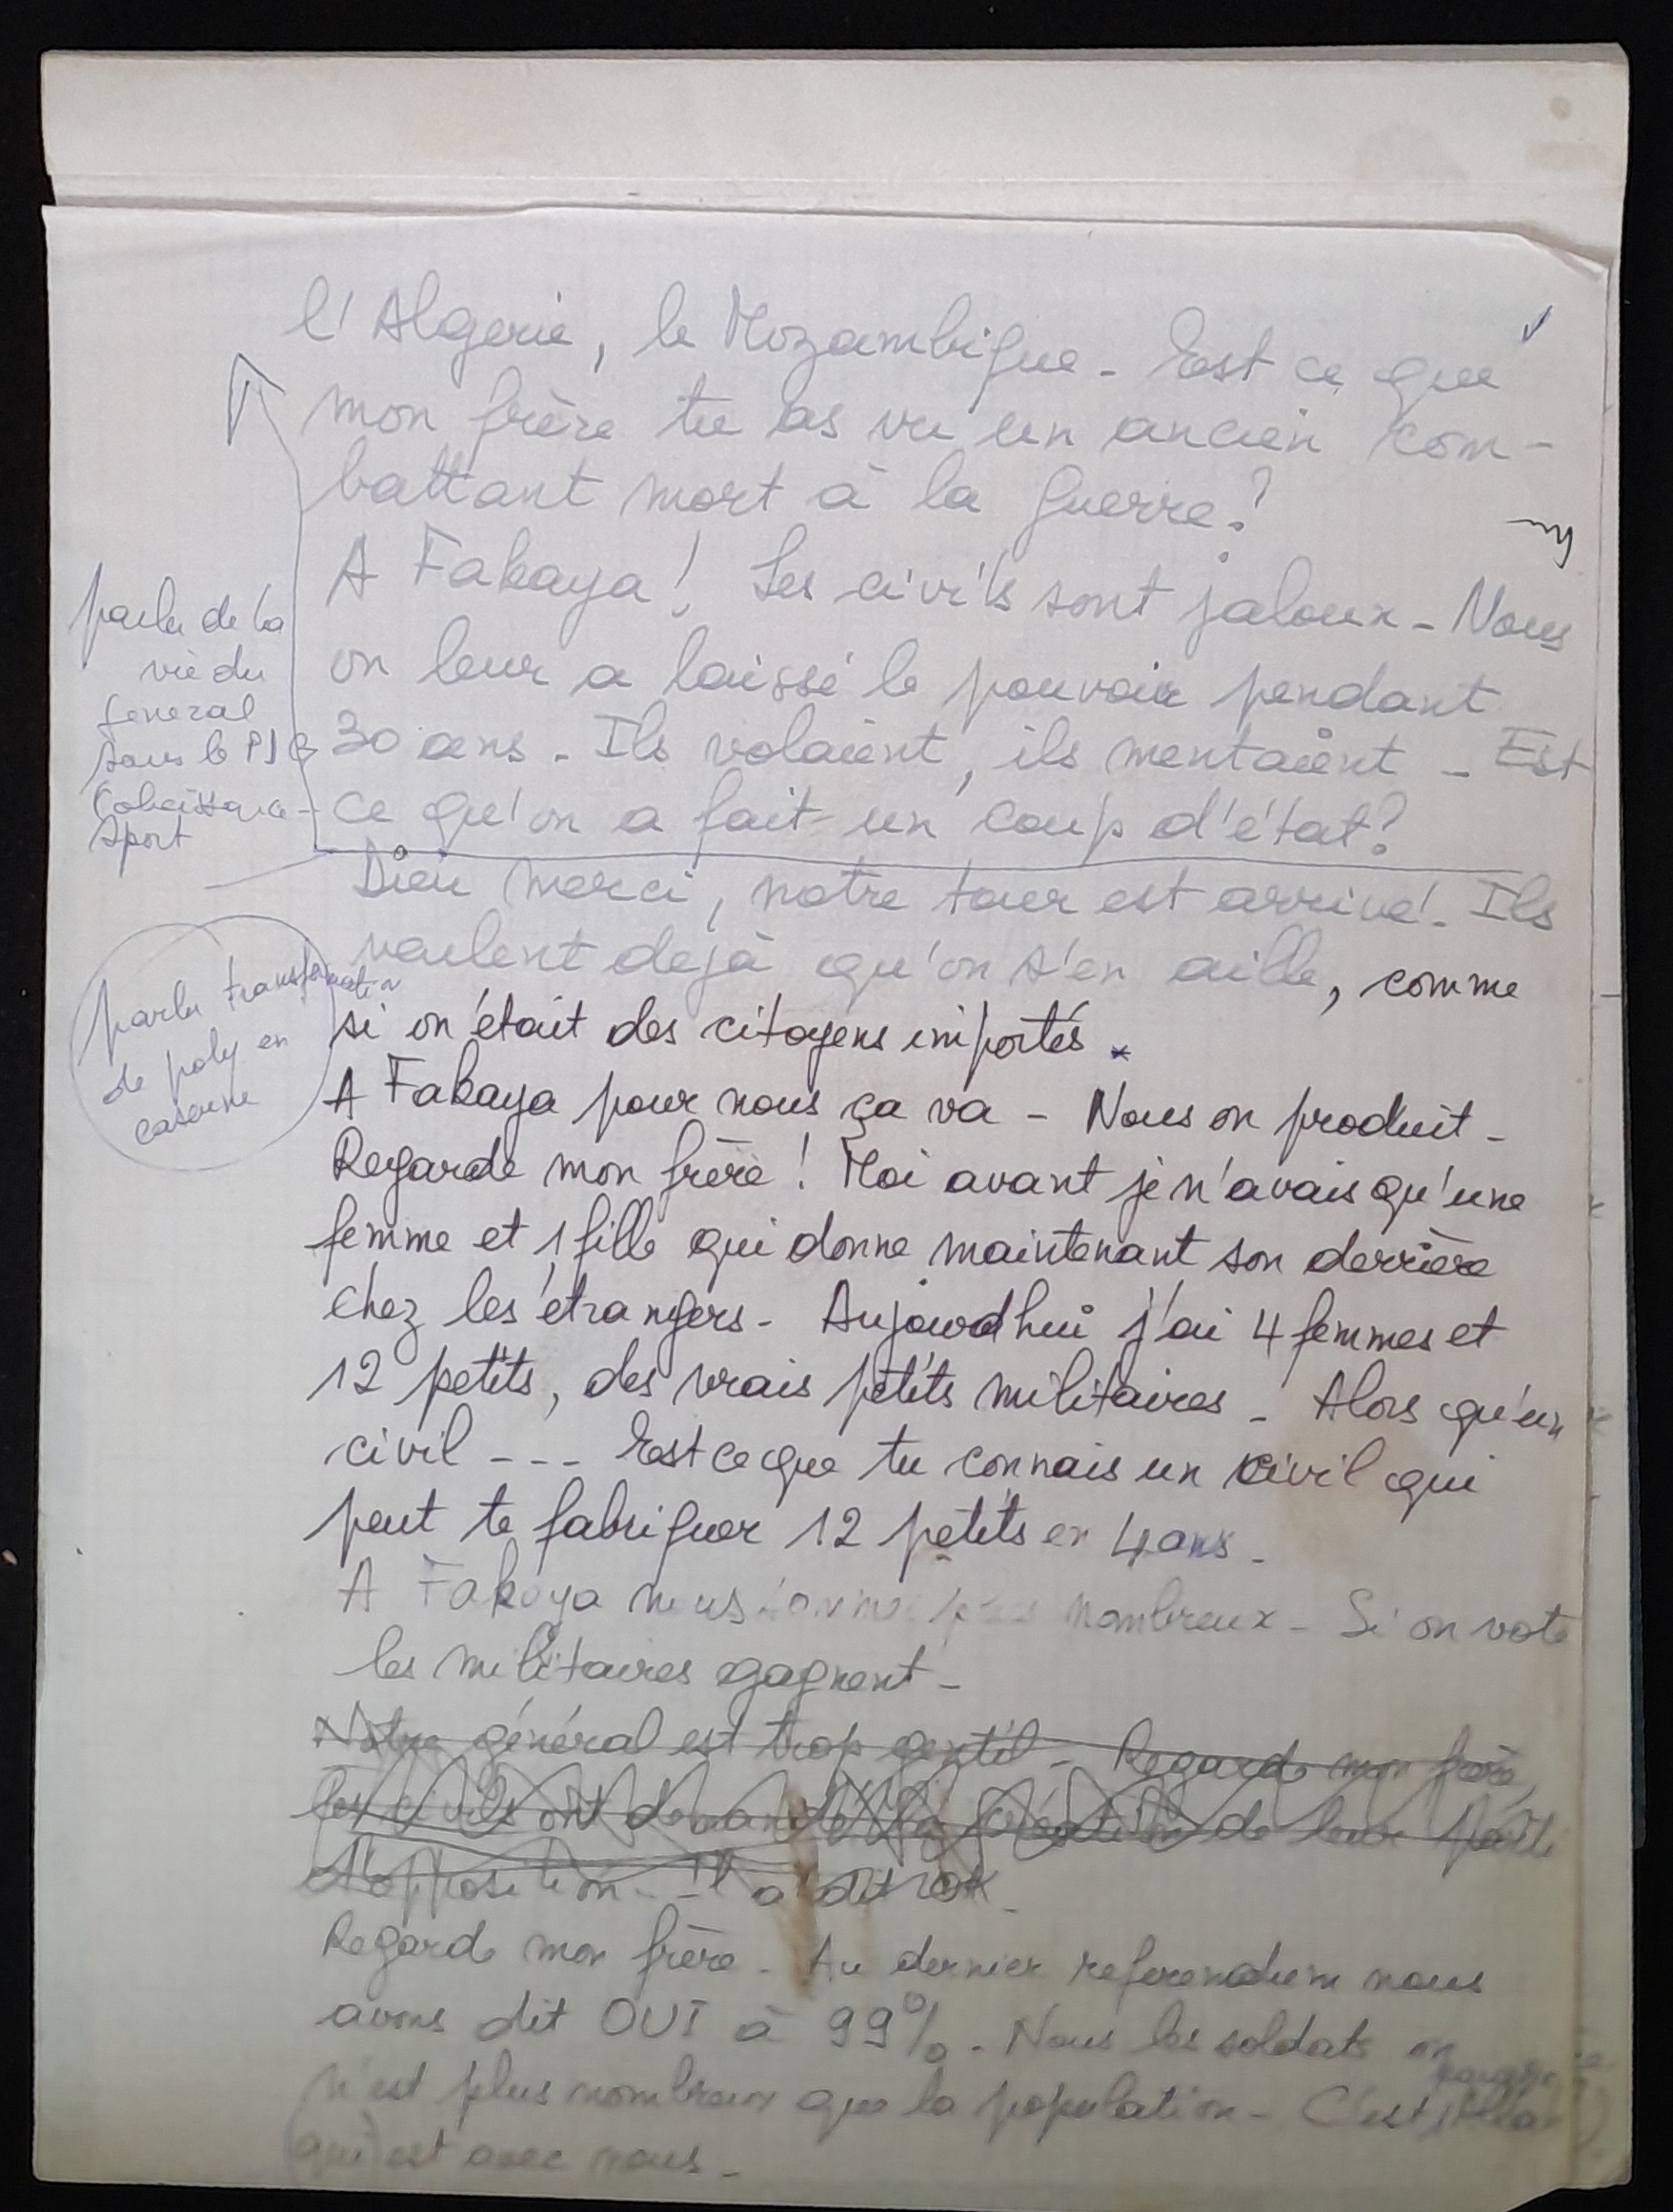 l'Algerie, le Mozambique - Est ce que
mon frère tu as vu un ancien com-
battant mort à la guerre?
A Fakaya! Les civils sont jaloux - Nous
on leur a laissé le pouvoir pendant
30 ans - Ils volaient, ils mentaient - Est
ce qu'on a fait un coup d'état?
parler de la
vie du
general
sous le
sport
Dieu merci, notre tour est arrivé. Ils
veulent dejà qu'on s'en aille, comme
si on était des citoyens importés.
parler transformation
de poly en
caserne
A Fakaya pour nous ça va - Nous on produit -
Regarde mon frère! Moi avant je n'avais qu'une
femme et 1 fille qui donne maintenant son derrière
chez les étrangers - Aujourdhui j'ai 4 femmes et
12 petits, des vrais petits militaires - Alors qu'un
civil --- Est ce que tu connais un civil qui
peut te fabriquer 12 petits en 4 ans -
A Fakaya nous nombreux - Si on vote
les militaires gagnent -
Notre général est trop gentil - Regarde mon frère,
les civils ont demandé la création de leur parti
d'opposition - Il a dit ok
Regarde mon frère - Au dernier referendum nous
avons dit OUI à 99% - Nous les soldats on
n'est plus nombreux que la population - C'est
qui est avec nous -